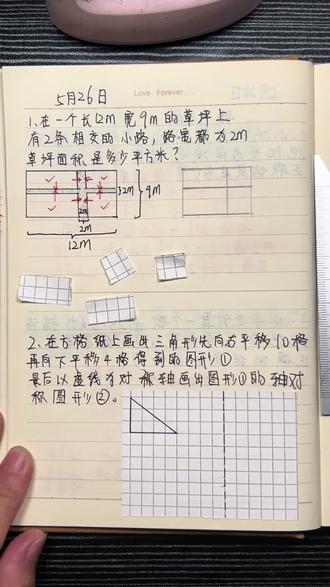 5月26日
Love Forever...
1.在一个长12m 宽9m的草坪上
有2条相交的小路，路宽都为2m
草坪面积是多少平方米？
2m
9m
2m
12m
2.在方格纸上画出三角形先向右平移10格
再向下平移4格得到的图形①
最后以虚线为对称轴画出图形①的轴对
称图形②。